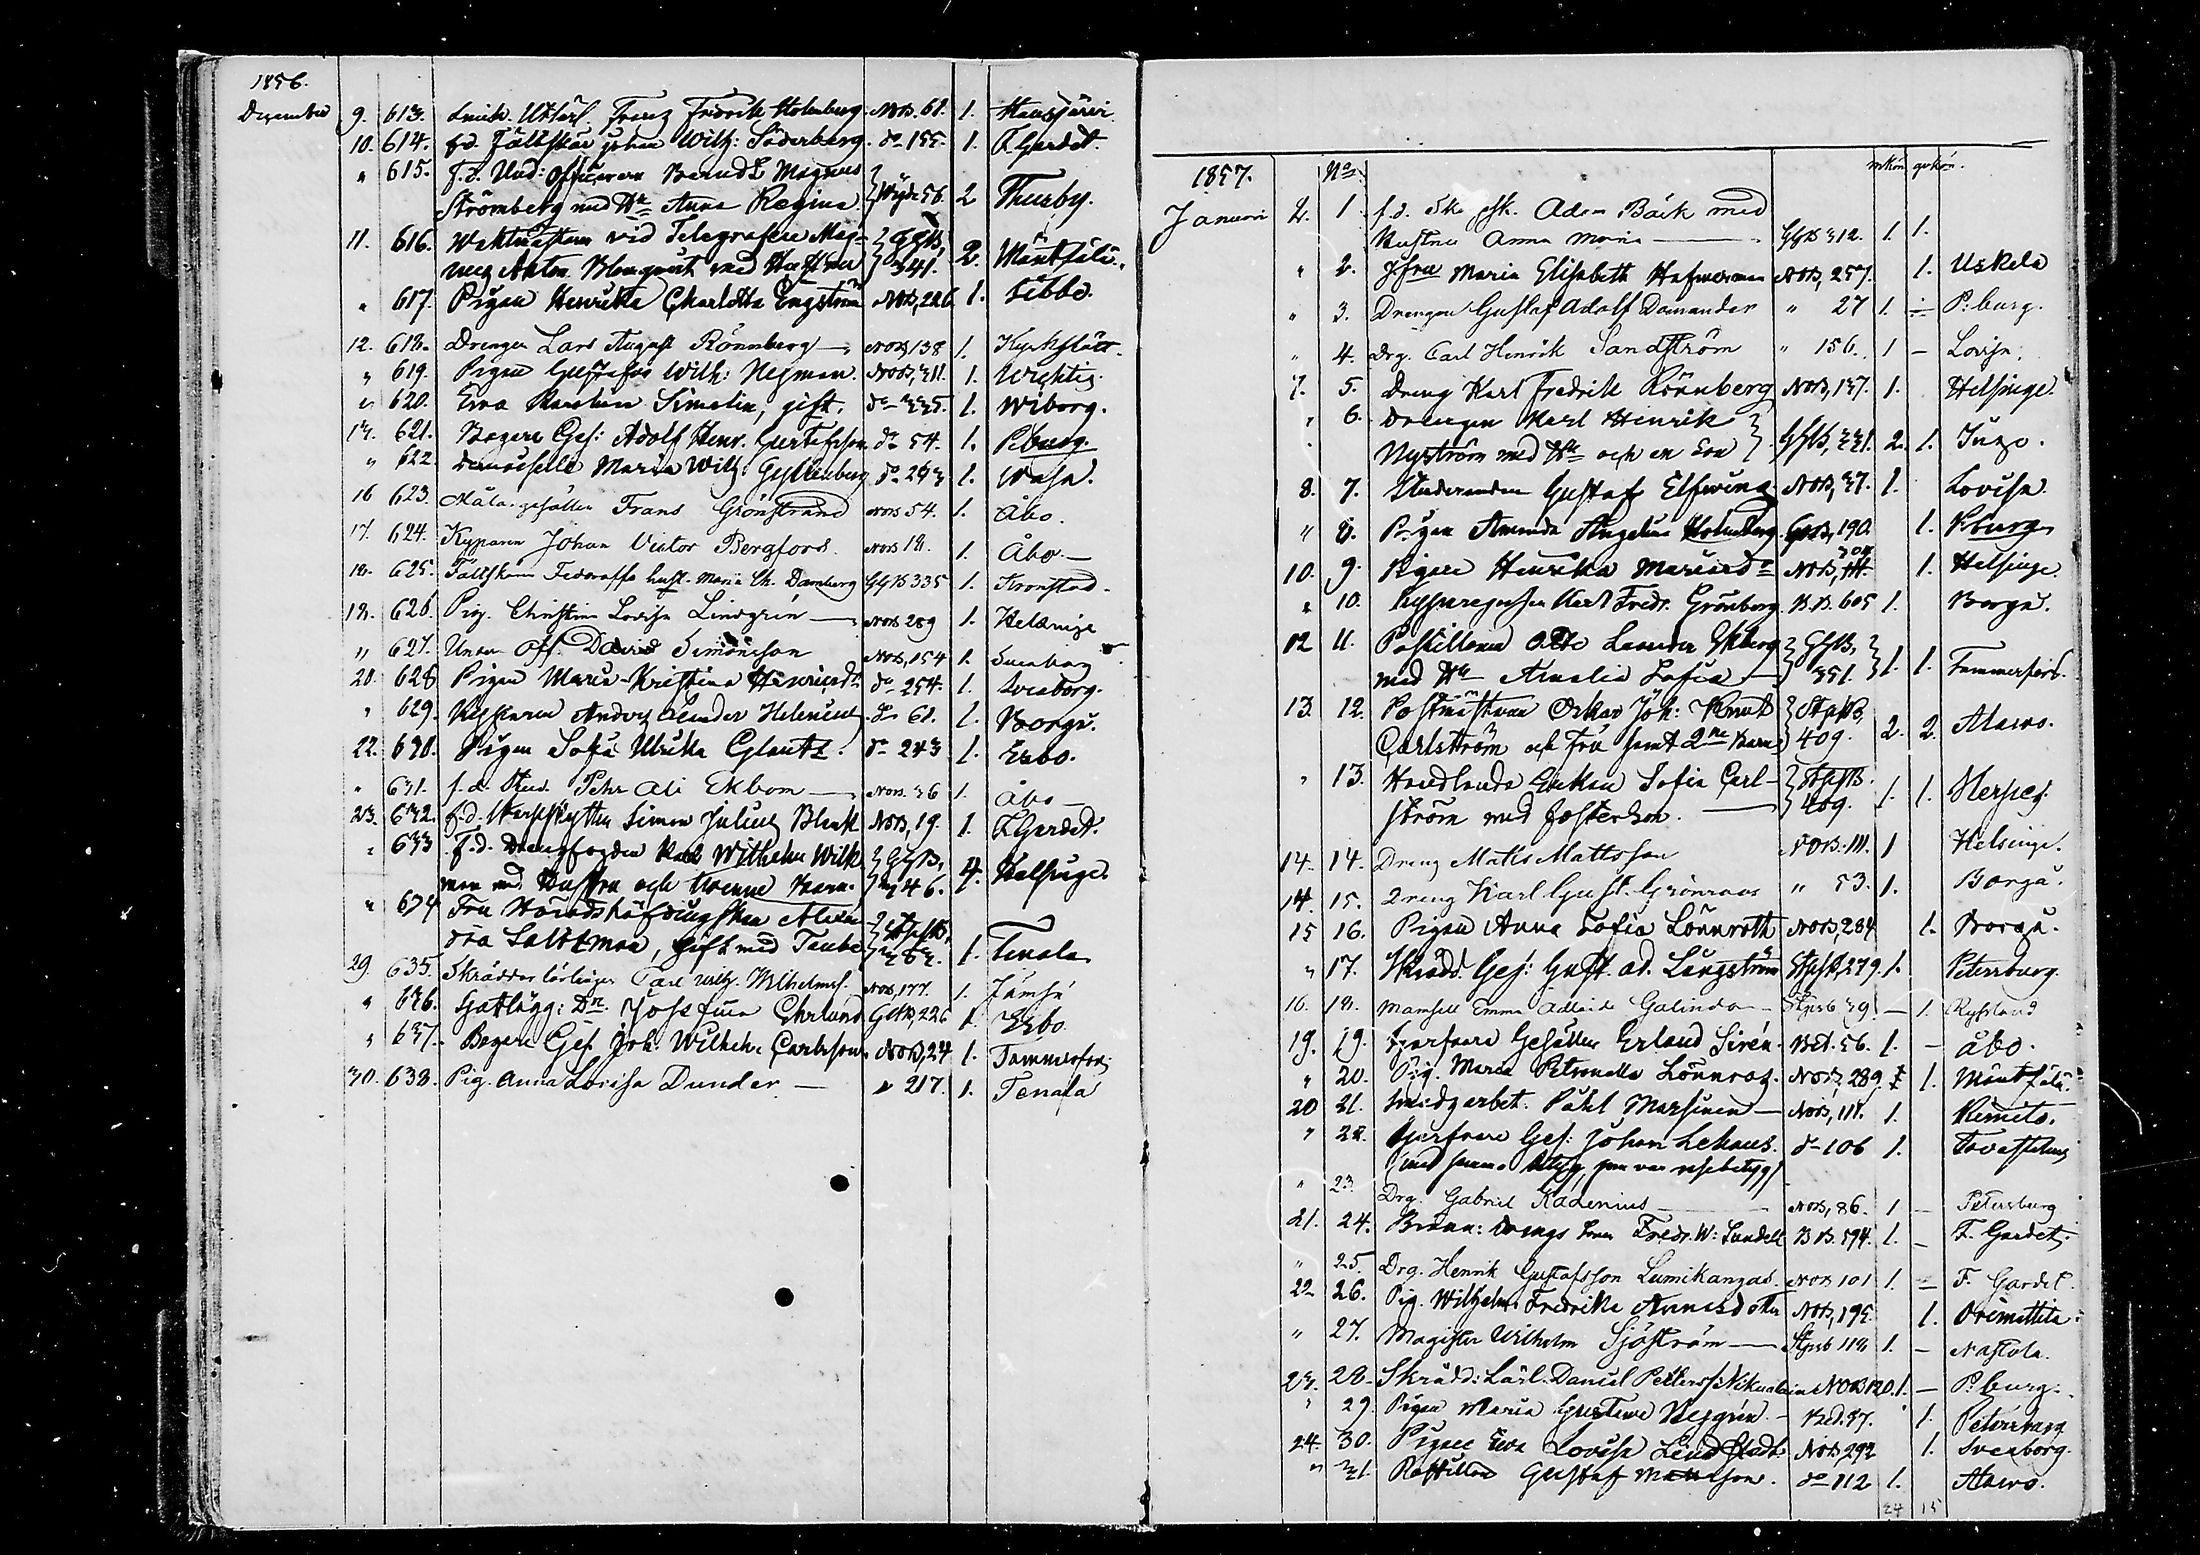 1856.
December 9. 613. Franz Fredrik Holmberg. NoB. 61. 1. Hausjärvi.
10. 614. f.d. Fältskär Johan Wilh: Söderberg. do 155. 1. F. Gardet.
" 615. f.d. Und: officeraren Berndt Magnus
Strömberg med Hu Anna Regina 56. 2 Thusby.
11. 616. Waktmästaren vid Telegrafen Mag-
nus Anton Blomquist med Hustru GGB, 341. 2. Mäntsälä.
" 617. Pigan Henrika Charlotta Engström NoB, 226 1. Sibbo.
12. 618. Drengen Lars August Rönnberg — NoB, 138 1. Kyrkslätt.
" 619. Pigan Gustafva Wilh: Nyman. NoB, 311. 1. Wichtis.
" 620. Ewa Karolina Simelin, gift. do 335. 1. Wiborg.
13. 621. Bagare Ges: Adolf Henr. Gustafsson do 54. 1. P.burg
" 622. Demoiselle Maria Wilh: Gyllenberg do 243 1. Wasa.
16 623. Målaregesällen Frans Grönstrand NoB 54. 1. Åbo.
17. 624. Kyparen Johan Victor Bergfors. NoB 18. 1. Åbo —
18. 625. Fältskärn Fedoroffs hust. Maria Ch. Damberg GGB 335 1. Kronstad.
18. 626. Pig. Christina Lovisa Lindgrén — NoB 289 1. Helsinge
" 627. Under Off. David Simonsson NoB, 154 1. Sveaborg
20. 628 Pigan Maria Kristina Henriksdr do 254. 1. Sveaborg.
" 629. Kyparen Anders Leander Helenius do 61. 1. Borgå.
22. 630. Pigan Sofia Ulrika Glantz. do 243 1. Esbo.
" 631. f.d. Stud. Pehr Ali Ekbom — NoB. 36 1. Åbo —
23. 632. f.d. Skarpskytten Simon Julius Blank NoB, 19. 1. F. Gardet.
" 633 F.d. Drengfogden Karl Wilhelm Wilk-
man med Hustru och tvenne barn. GGB, 346. 4. Helsinge.
" 634 Fru Häradshöfdingskan Alexan-
dra Saltzman, gift med Taube StpsB, 383. 1. Tenala
29. 635. Skräddarlärlingen Carl Wilh. Wilhelmsf. NoB, 177. 1. Jämsä
" 636. Gatlägg: Dr. Josefina Ehrlund GGB, 226 1. Esbo
" 637. Bagare Ges. Joh. Wilhelm Carlsson NoB, 24 1. Tammerfors
30. 638. Pig. Anna Lovisa Dunder — " 217. 1. Tenala
1857. No mkön qvkön.
Januari 2. 1. f.d. Adam Bäck med
Hustru Anna Maria — GGB 312. 1. 1.
" 2. Jfru Maria Elisabeth Hafverman NoB, 257. 1. Uskela
" 3. Drengen Gustaf Adolf Damander " 27 1. — P:burg.
" 4. Drg. Carl Henrik Sandström " 156. 1 — Lovisa.
7. 5. Dreng Karl Fredrik Rönnberg NoB, 137. 1. Helsinge.
" 6. Drengen Karl Hinrik
Nyström med Hu och en son GGB, 331. 2. 1. Ingo.
8. 7. Studeranden Gustaf Elfving. NoB, 37. 1. Lovisa.
" 8. Pigan Amanda Angelina Holmberg. GGB, 190. 1. P.burg
10. 9. Pigan Henrika Mariasdr NoB, 1. Helsinge.
" 10. Kypare Karl Fredr. Grönberg. B.B. 605 1. Borgå.
12 11. Postillonen Otto Leander Ekberg
med Hu Amalia Sofia — GGB, 351. 1. 1. Tammerfors.
13. 12. Postmästaren Oskar Joh: Knut
Carlström och Fru samt 2ne barn StpsB, 409. 2. 2. Alavo.
" 13. Handlande Enkan Sofia Carl-
ström med fosterson. — StpsB. 409. 1. 1.
14. 14. Dreng Matts Mattsson NoB. 111. 1 Helsinge.
14. 15. Dreng Karl Gust. Grönroos " 53. 1. Borgå.
15 16. Pigan Anna Sofia Lönnroth NoB, 284 1. Borgå.
" 17. Skrädd. Ges: Gust. Ad. Långström StpsB, 279. 1. Petersburg.
16. 18. Mamsell Emma Adlaide Galindo — Stpsb 39 — 1. Ryssland
19. 19. Garfvare Gesällen Erland Sirén. Bet. 56. 1. — Åbo.
" 20. Pig. Maria Petronella Lönnros. NoB, 289 1. Mäntsälä.
20 21. Smidgarbet. Påhl Marsinen — NoB, 111. 1. Kimito.
" 22. Garfvare Ges: Johan Lehaus. do 106 1. Tavastehus
(med samma betyg, som var resebetyg)
" 23. Drg. Gabriel Kadenius — NoB, 86. 1 — Petersburg
21. 24. Bränn: drengs Fredr. W: Sundell B.B. 594. 1. — F. Gardet.
" 25. Drg. Henrik Gustafsson Lumikangas. NoB 101 1. — F. Gardet.
22 26. Pig. Wilhelm. Fredrika Annasdotter NoB, 195. 1. Orimattila.
" 27. Magister Wilhelm Sjöström — Stpsb 118 1. — Nastola.
23. 28. Skrädd: Lärl. Daniel Petters. Nikulain NoB 120. 1. — P:burg.
" 29. Pigan Maria Gustava Nygrén. — Bet. 97. 1. Petersburg
24. 30. Pigan Eva Lovisa Lindstedt NoB 292 1. Sveaborg.
" 31. Postillon Gustaf Mattsson. do 112 1. Alavo.
24 15